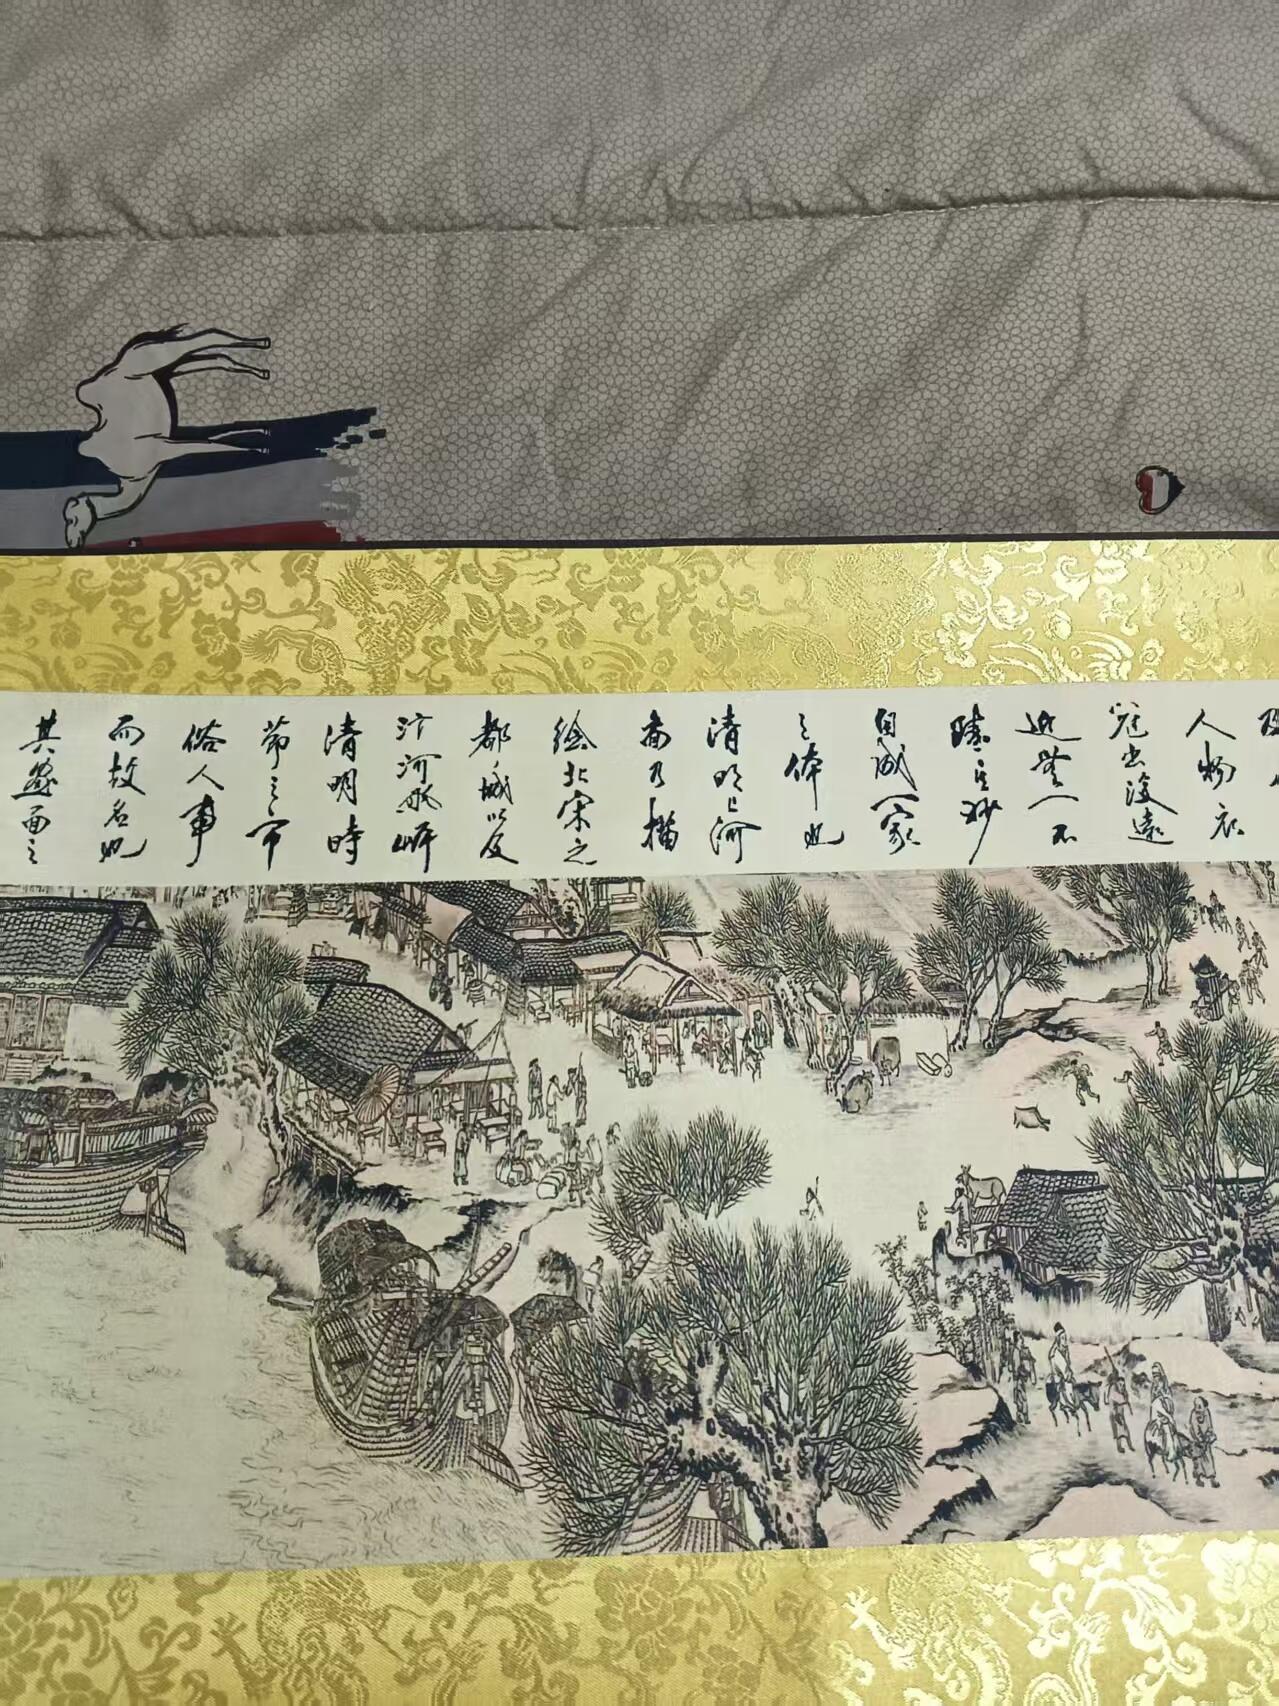 人物衣
冠出没遠
近無一不
臻其妙
自成一家
之体也
清明上河
畵乃描
绘北宋之
都城以及
汴河两岸
清明時
節之市
俗人事
而故名也
其畫面之